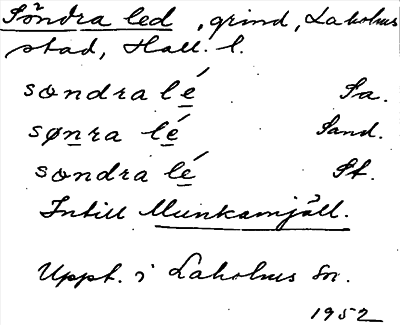 Söndra led, grind, Laholms
stad, Hall. l.
søndra lé Sa.
sønra lé Sand.
søndra lé St.
Intill Munkamjäll.
Uppt. i Laholms sn.
1952